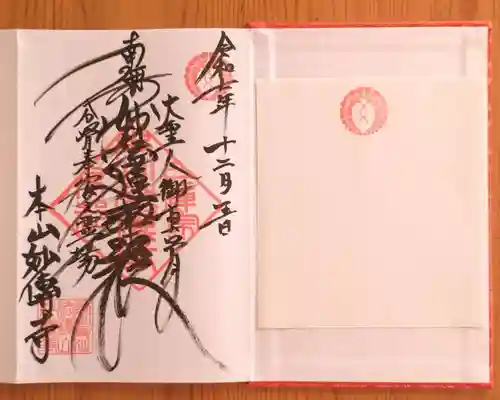 令和二年 十二月五日
大聖人御真骨
南無妙法蓮華経
分骨奉安霊場
本山妙傳寺